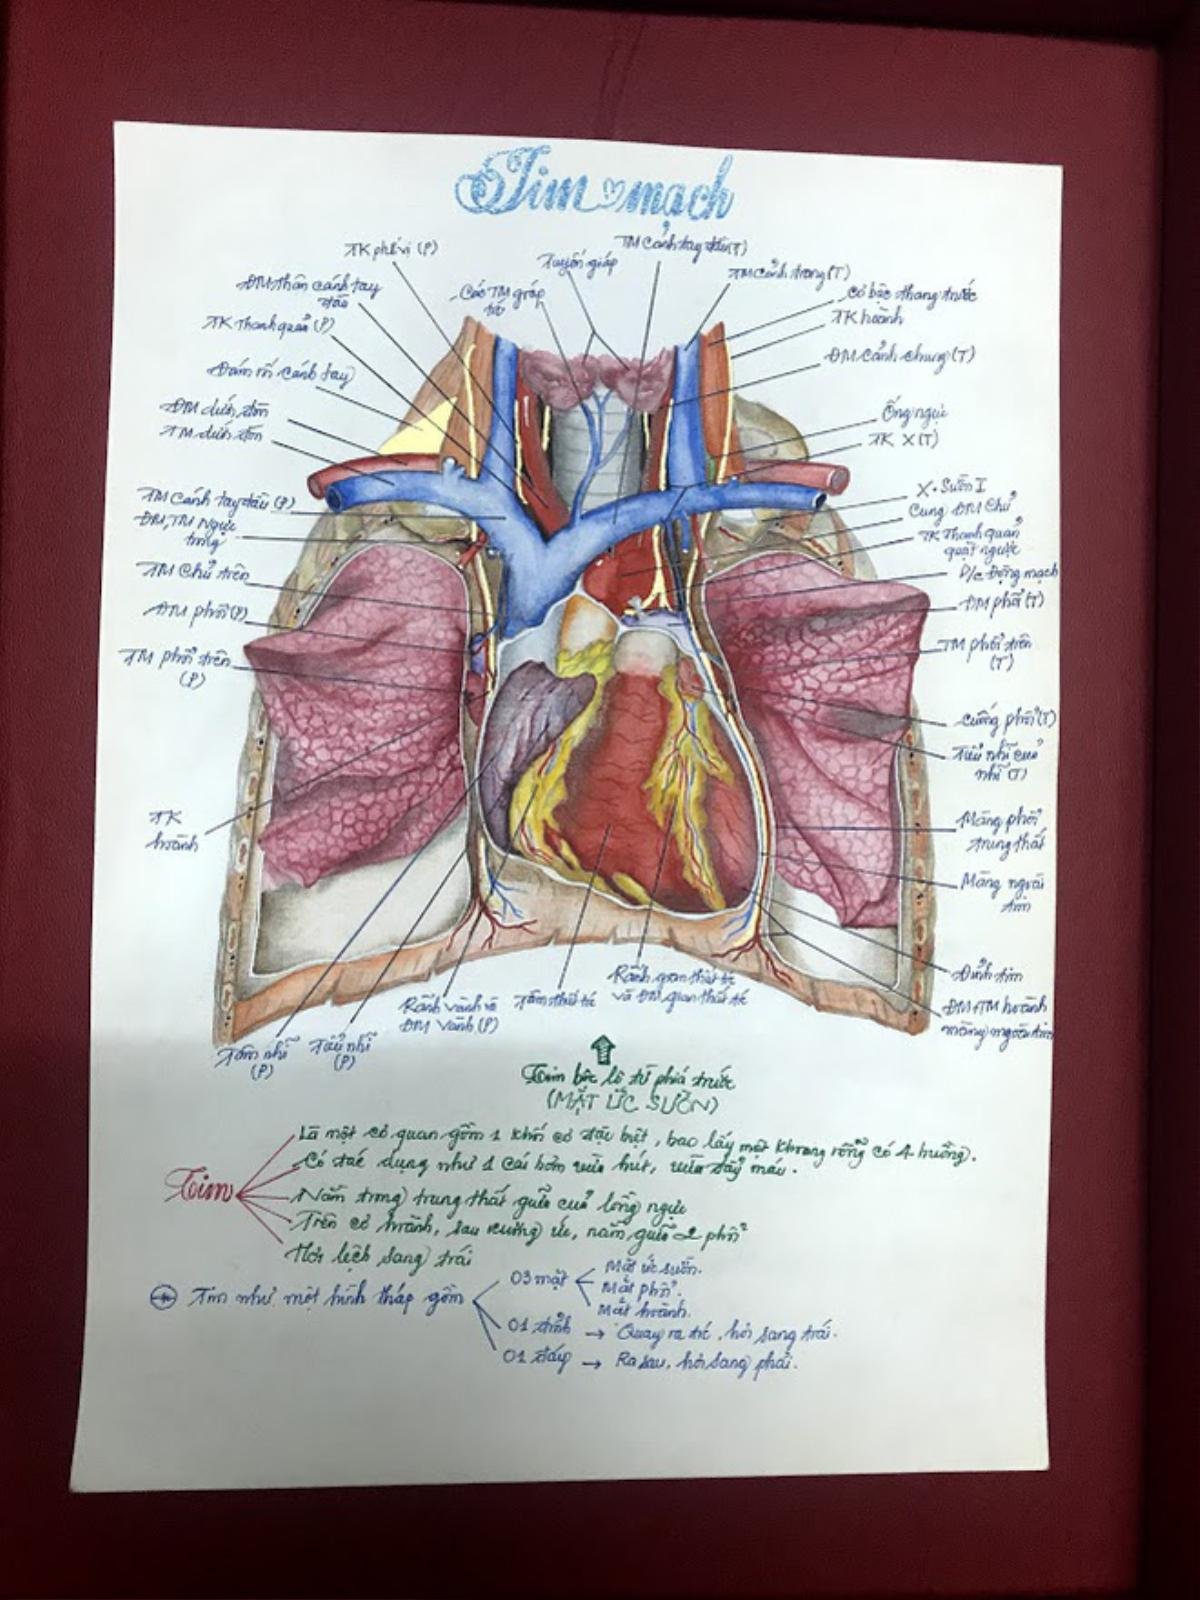 Tim mạch
TK phế vị (P)
ĐM thân cánh tay
đầu
TK Thanh quản (P)
Đám rối cánh tay
ĐM dưới đòn
TM dưới đòn
TM Cánh tay đầu (P)
ĐM, TM Ngực
trong
TM Chủ trên
ĐM phổi (P)
TM phổi trên
(P)
TK
hoành
Các TM giáp
dưới
Tuyến giáp
TM Cánh tay đầu (T)
TM Cảnh trong (T)
Cơ bậc thang trước
TK hoành
ĐM cảnh chung (T)
Ống ngực
TK X (T)
X. Sườn I
Cung ĐM Chủ
TK Thanh quản
quặt ngược
D/c Động mạch
ĐM phổi (T)
TM phổi trên
(T)
Cuống phổi (T)
Tiểu nhĩ của
nhĩ (T)
Màng phổi
trung thất
Màng ngoài
tim
Đỉnh tim
ĐM+TM hoành
màng ngoài tim
Tâm nhĩ
(P)
Tiểu nhĩ
(P)
Rãnh vành và
ĐM Vành (P)
Tâm thất
Rãnh gian thất
và ĐM gian thất
Tim bộc lộ từ phía trước
(MẶT ỨC SƯỜN)
Tim
Là một cơ quan gồm 1 khối cơ đặc biệt, bao lấy một khoang rỗng có 4 buồng.
Có tác dụng như 1 cái bơm vừa hút, vừa đẩy máu.
Nằm trong trung thất giữa của lồng ngực
Trên cơ hoành, sau xương ức, nằm giữa 2 phổi
Hơi lệch sang trái
Tim như một hình tháp gồm
03 mặt
Mặt ức sườn.
Mặt phổi.
Mặt hoành.
01 đỉnh → Quay ra trước, hơi sang trái.
01 đáy → Ra sau, hơi sang phải.